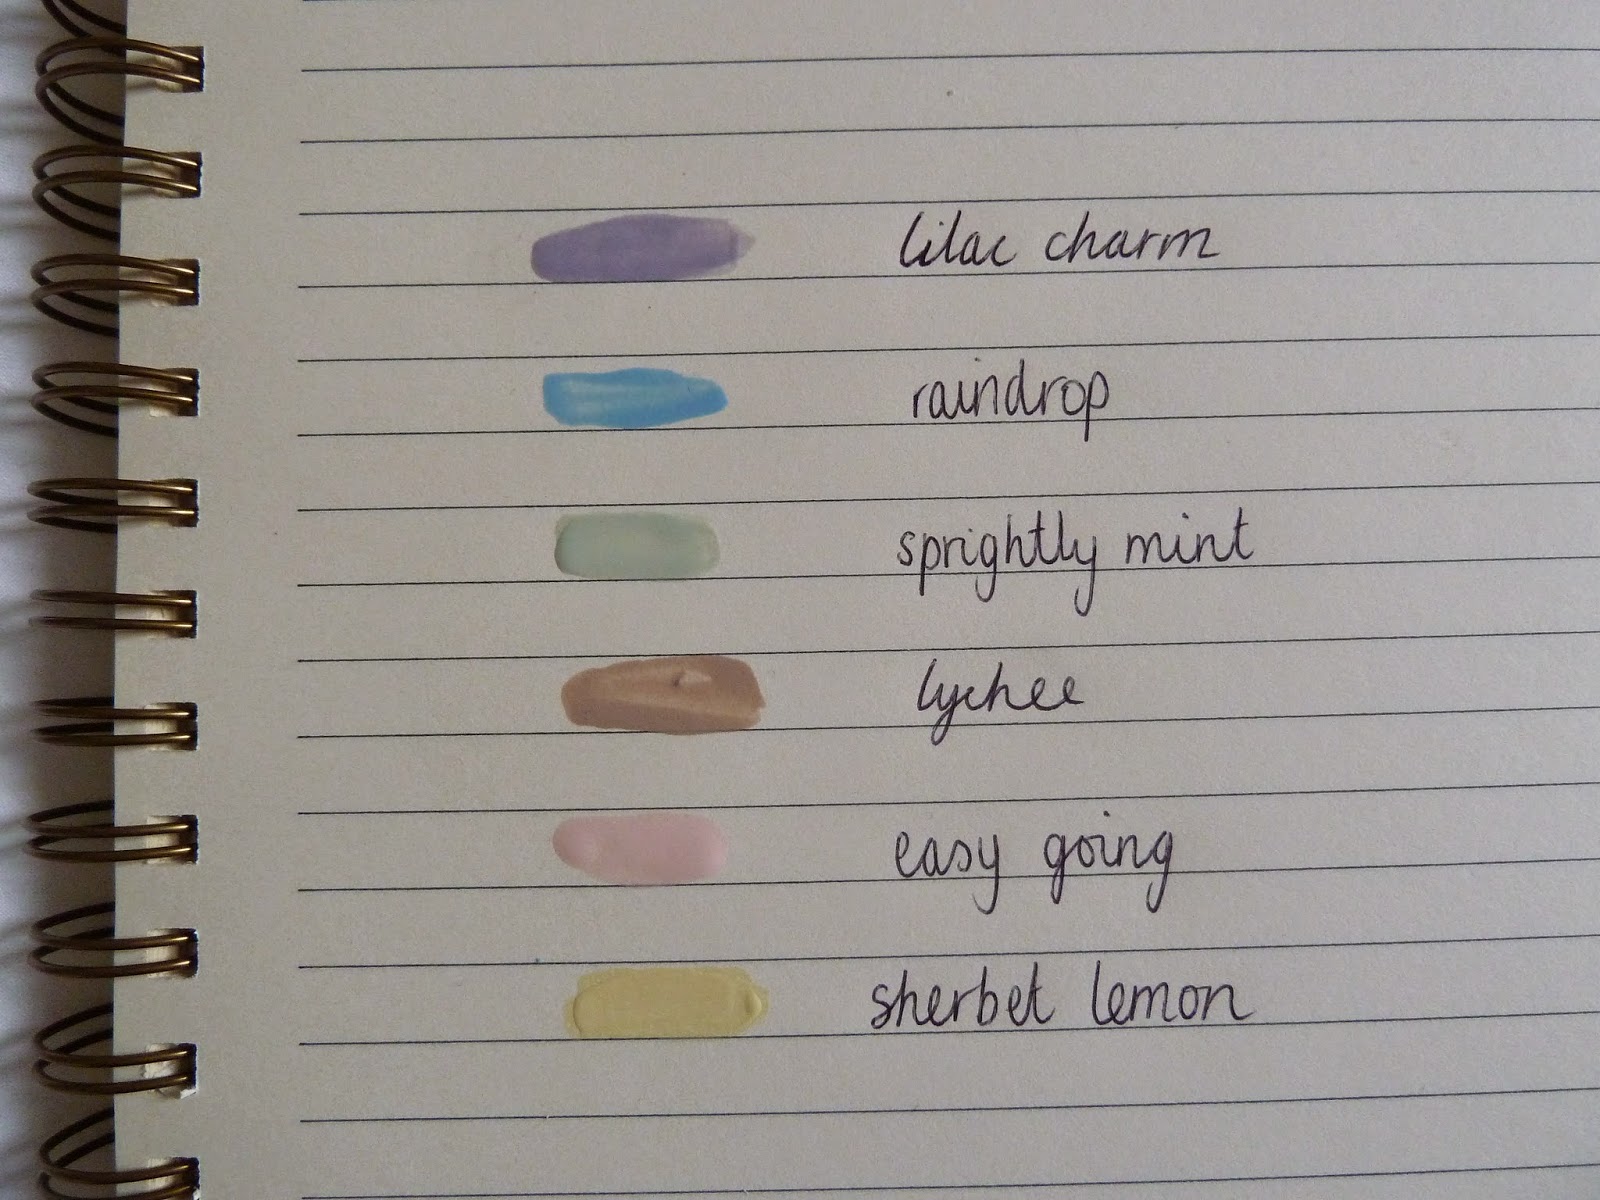 lilac charm
raindrop
sprightly mint
lychee
easy going
sherbet lemon